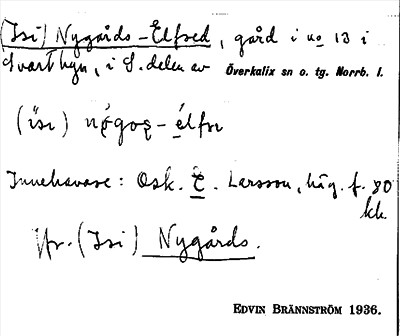 (Isi) Nygårds-Elfred, gård i no 13 i
Svartbyn, i S. delen av Överkalix sn o. tg. Norrb. l.
(isi) nǫ́goʂ-élfre
Innehavare: Osk. E. Larsson, häg. f. 80
kk.
Jfr. (Isi) Nygårds.
EDVIN BRÄNNSTRÖM 1936.